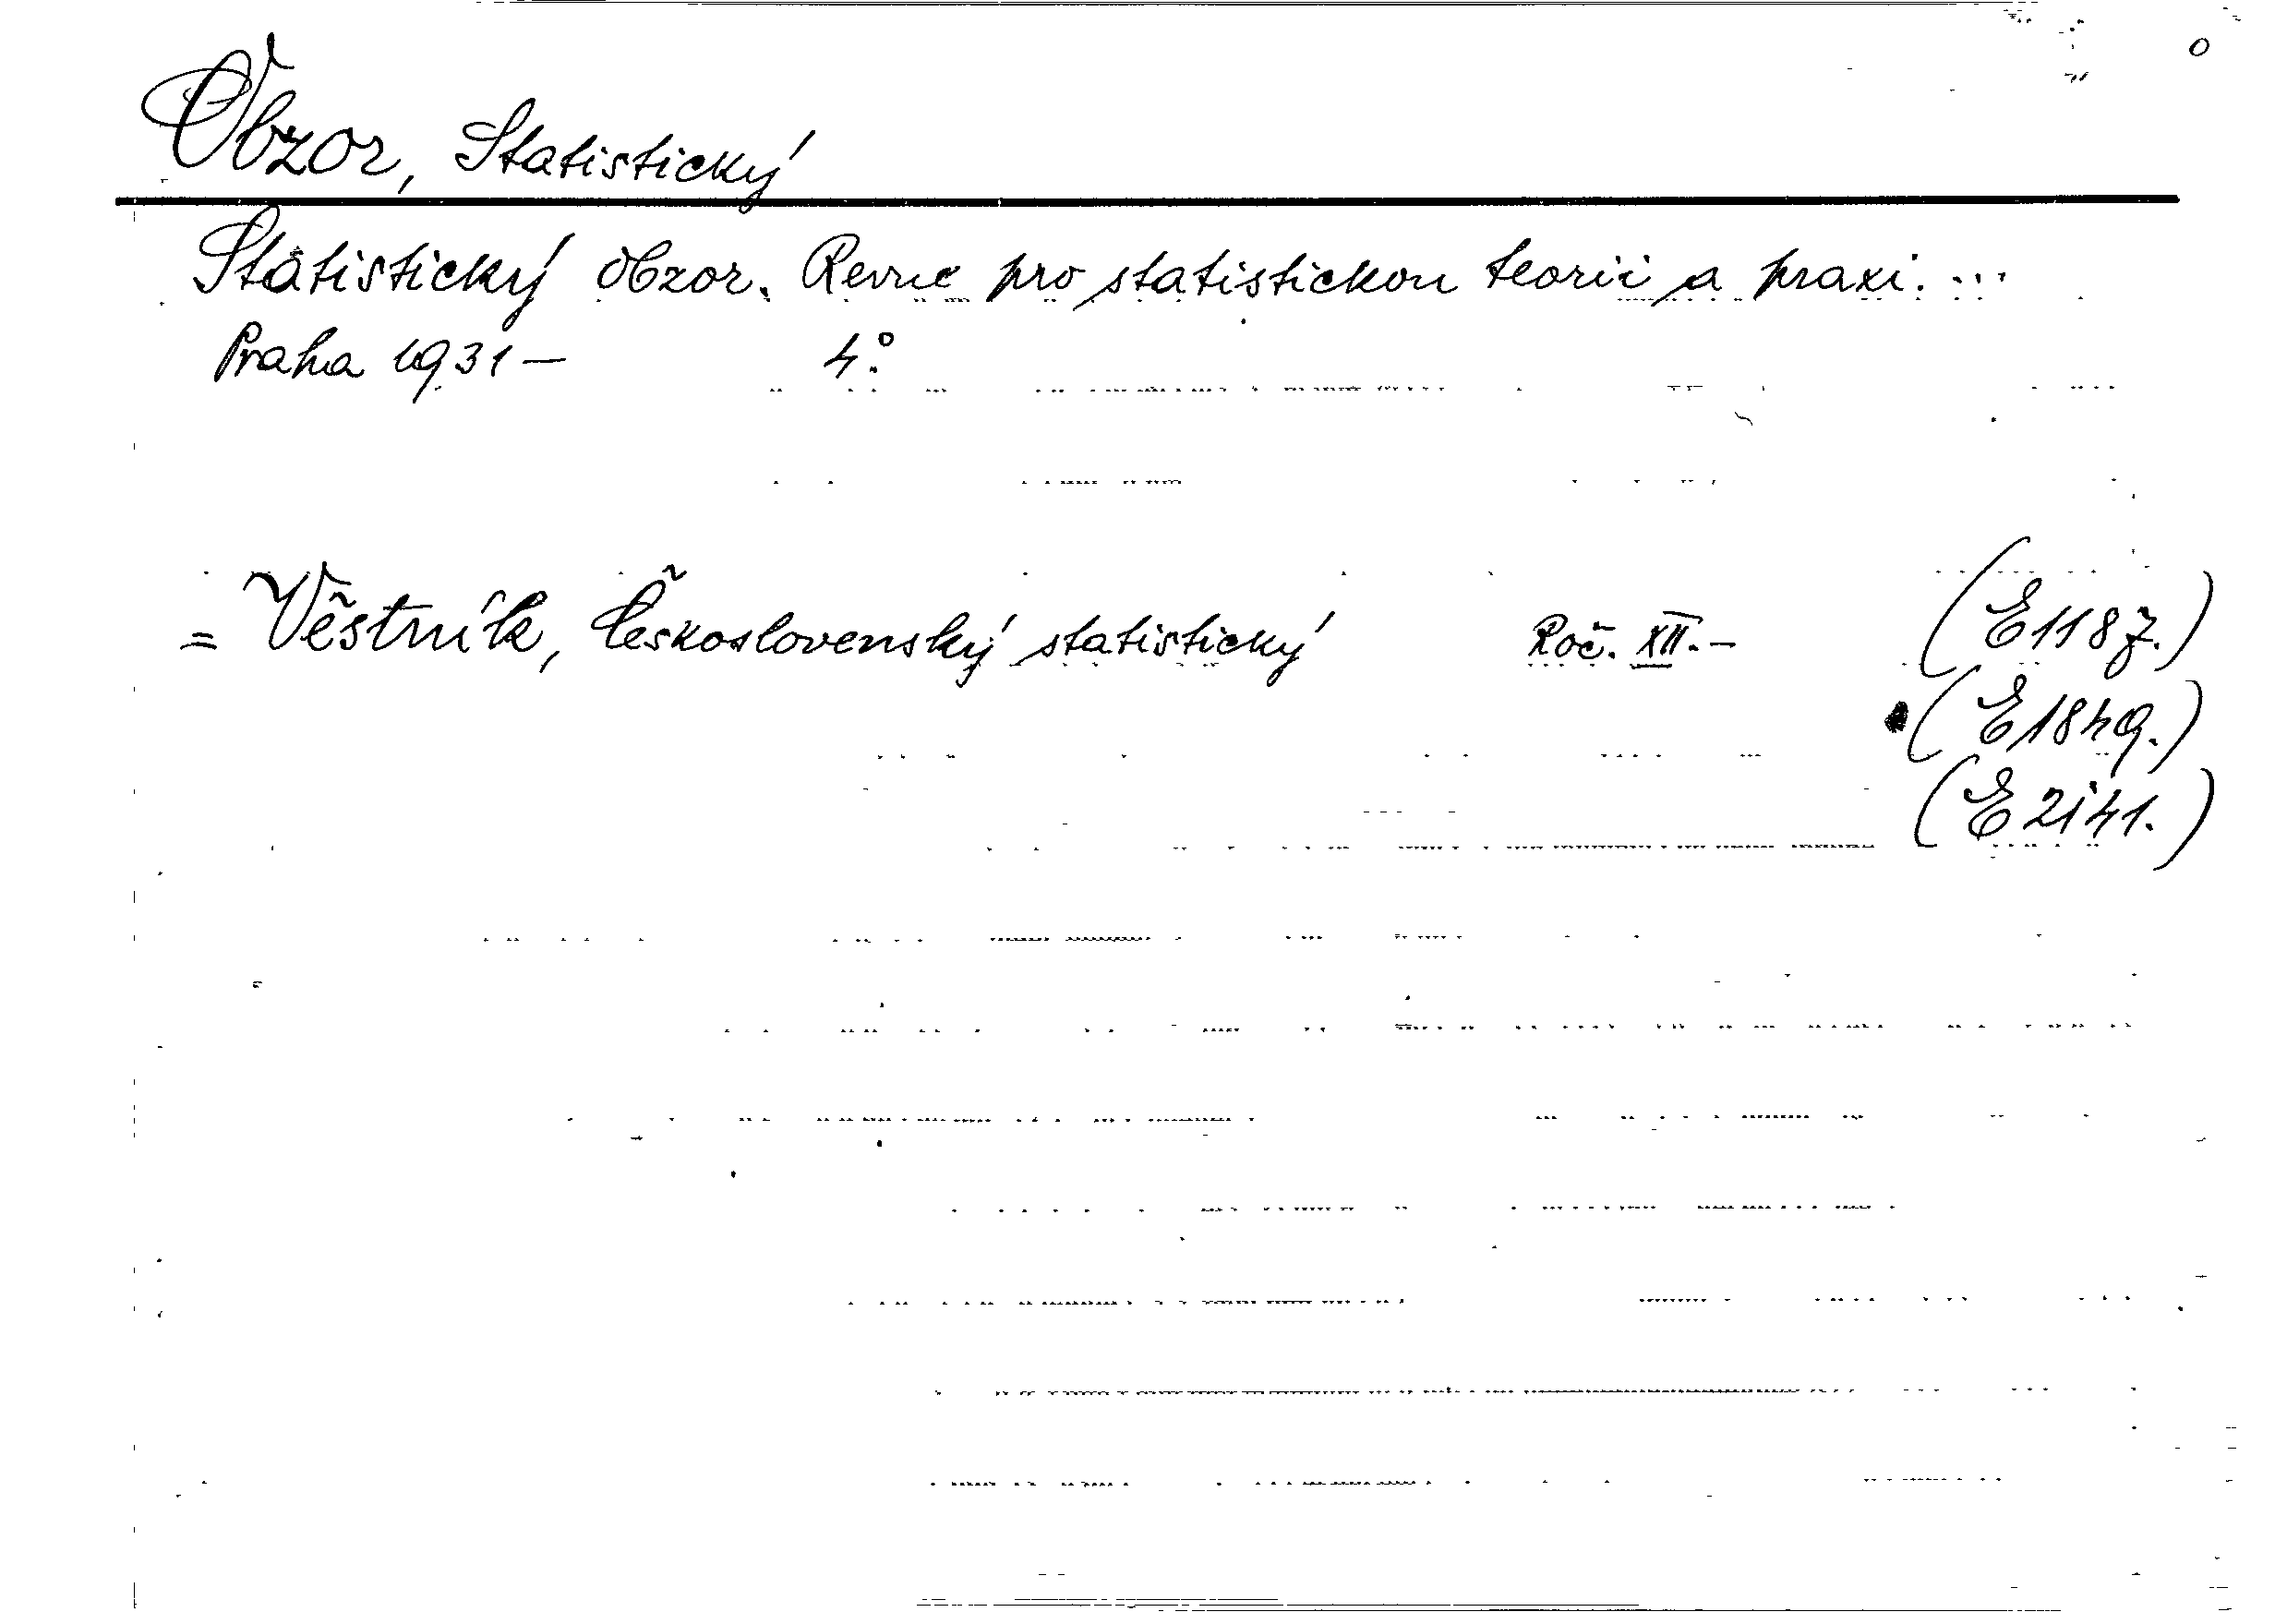 O
Obzor, Statistický
Statistický obzor. Revue pro statistickou teorii a praxi. ...
Praha 1931— 4°.
= Věstník, Československý statistický Roč. XII.— (E1187.)
(E1849.)
(E2141.)